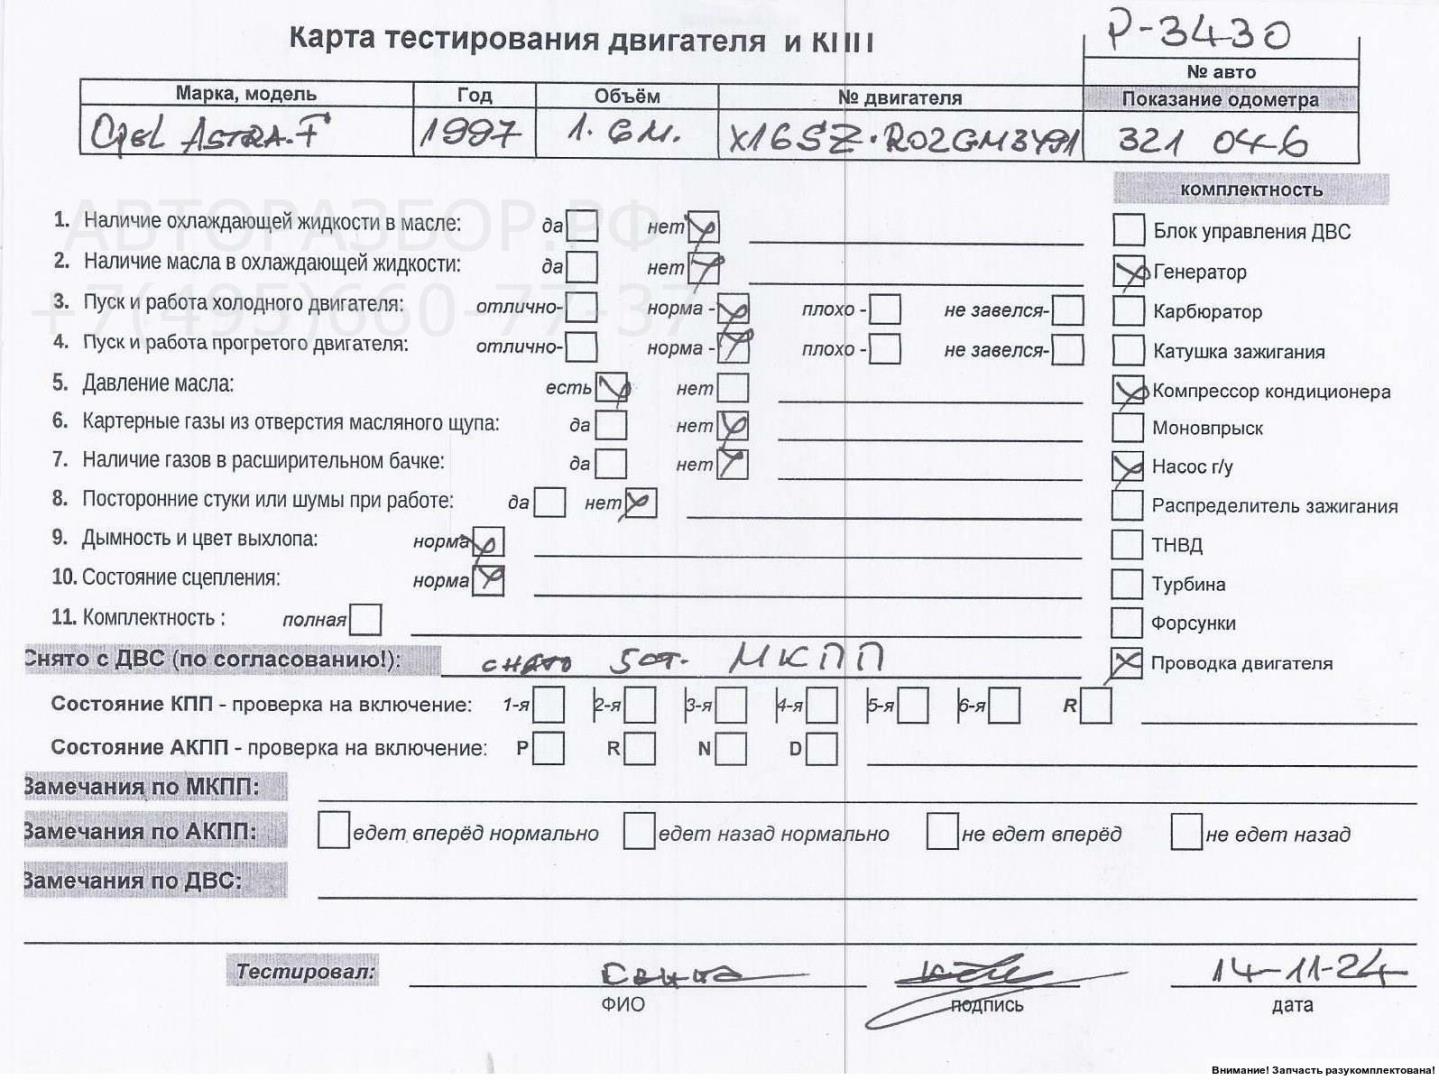 Карта тестирования двигателя и КПП
Р-3430
№ авто
Марка, модель Год Объём № двигателя Показание одометра
Opel Astra-F 1997 1.6 м. X16SZ 321 046
комплектность
АВТОРАЗБОР.РФ
+7(495)660-77-37
1. Наличие охлаждающей жидкости в масле: да нет
Блок управления ДВС
2. Наличие масла в охлаждающей жидкости: да нет
Генератор
3. Пуск и работа холодного двигателя: отлично- норма - плохо - не завелся-
Карбюратор
4. Пуск и работа прогретого двигателя: отлично- норма - плохо - не завелся-
Катушка зажигания
5. Давление масла: есть нет
Компрессор кондиционера
6. Картерные газы из отверстия масляного щупа: да нет
Моновпрыск
7. Наличие газов в расширительном бачке: да нет
Насос г/у
8. Посторонние стуки или шумы при работе: да нет
Распределитель зажигания
9. Дымность и цвет выхлопа: норма
ТНВД
10. Состояние сцепления: норма
Турбина
11. Комплектность : полная
Форсунки
Снято с ДВС (по согласованию!): снято 5ст. МКПП
Проводка двигателя
Состояние КПП - проверка на включение: 1-я 2-я 3-я 4-я 5-я 6-я R
Состояние АКПП - проверка на включение: P R N D
Замечания по МКПП:
Замечания по АКПП: едет вперёд нормально едет назад нормально не едет вперёд не едет назад
Замечания по ДВС:
Тестировал: 14-11-24
ФИО подпись дата
Внимание! Запчасть разукомплектована!